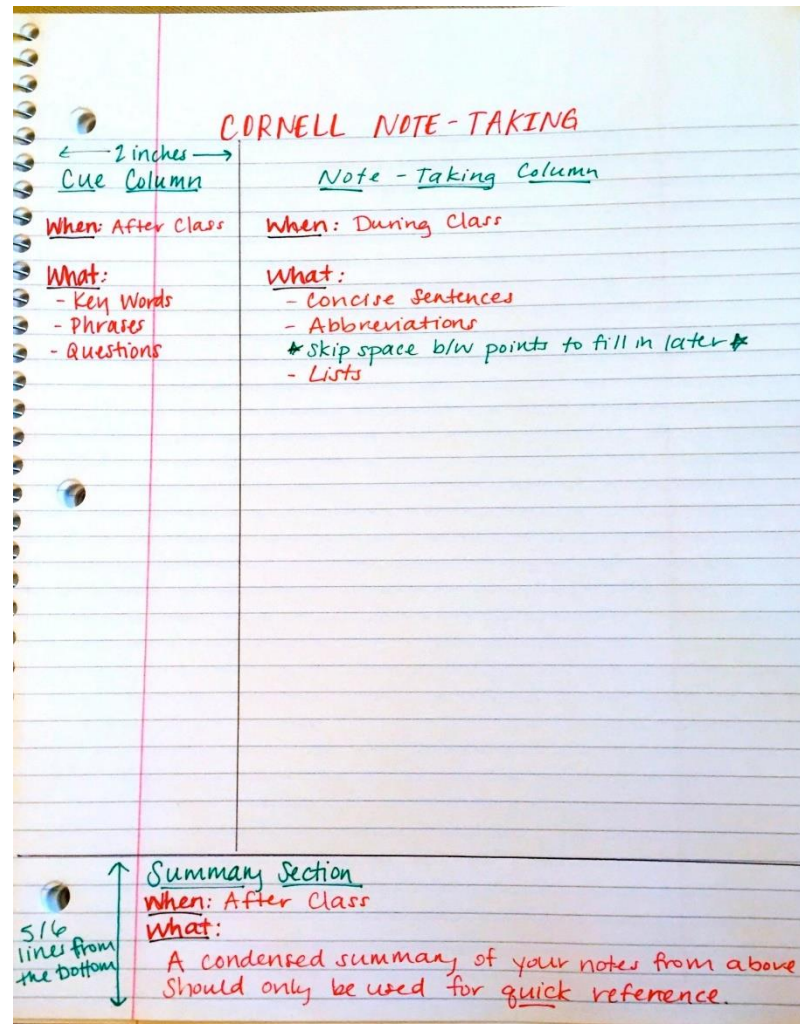 CORNELL NOTE-TAKING
← 2 inches →
Cue Column
When: After Class
What:
- Key Words
- Phrases
- Questions
Note-Taking Column
When: During Class
What:
- Concise Sentences
- Abbreviations
* Skip space b/w points to fill in later *
- Lists
5/6
lines from
the bottom
Summary Section
When: After Class
What:
A condensed summary of your notes from above
Should only be used for quick reference.